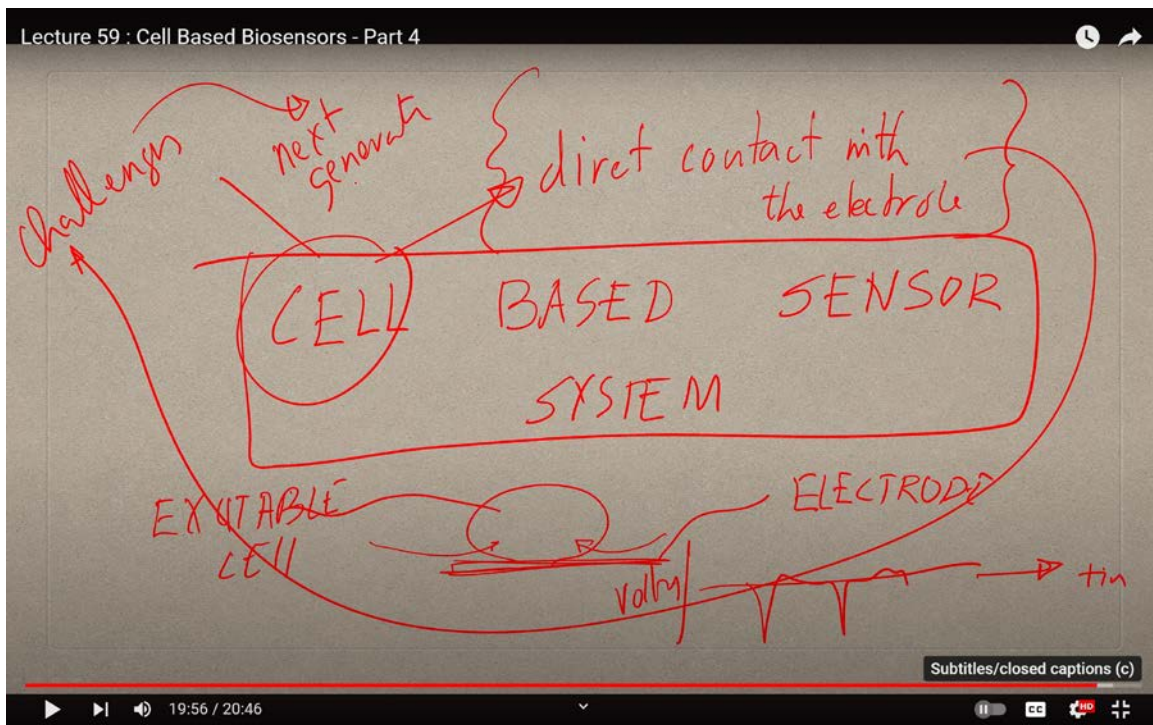 Lecture 59 : Cell Based Biosensors - Part 4
challenges
next
generati
diret contact with
the electrode
CELL BASED SENSOR
SYSTEM
EXCITABLE
CELL
ELECTRODE
tim
Subtitles/closed captions (c)
19:56 / 20:46
CC
HD